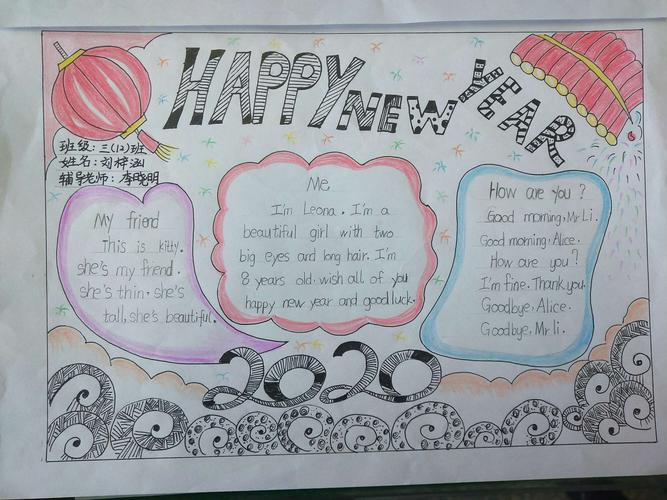 HAPPY NEW YEAR
班级：三(12)班
姓名：刘梓涵
辅导老师：李晓明
My friend
This is kitty.
she's my friend.
she's thin. she's
tall, she's beautiful.
Me
I'm Leona. I'm a
beautiful girl with two
big eyes and long hair. I'm
8 years old. wish all of you
happy new year and good luck.
How are you?
Good morning, Mr Li.
Good morning, Alice.
How are you?
I'm fine. Thank you.
Goodbye, Alice.
Goodbye, Mr li.
2020